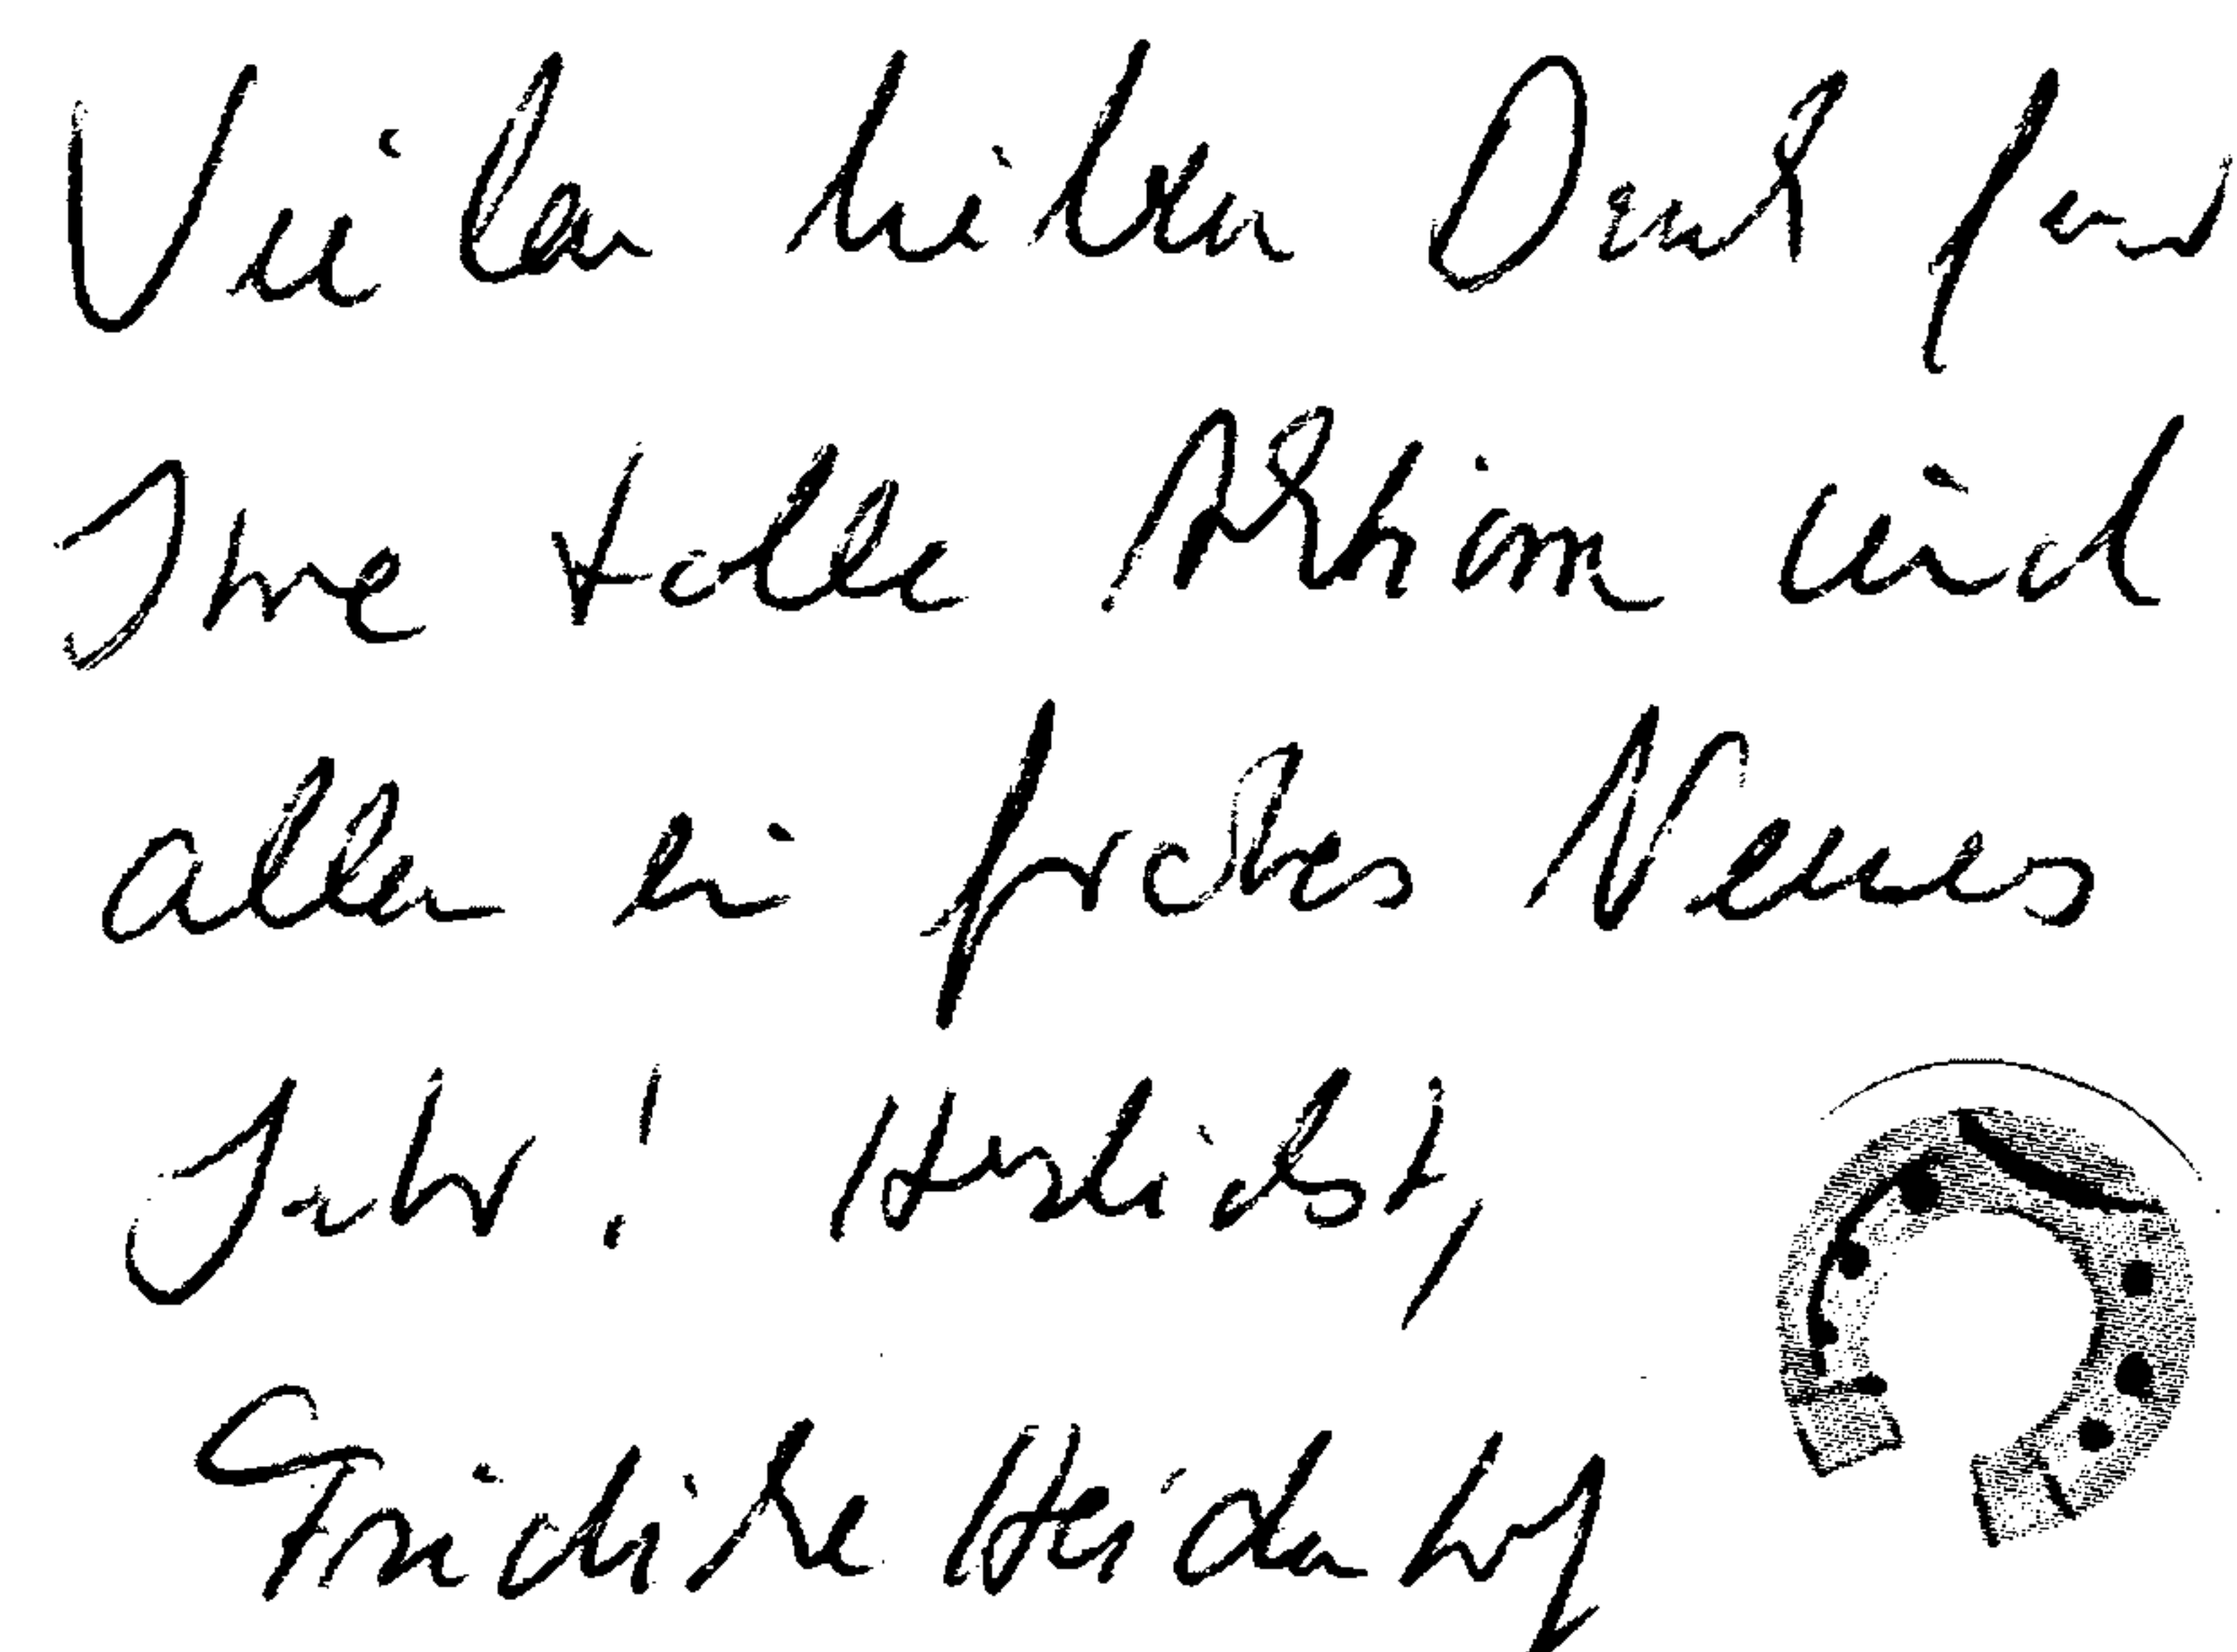 Vielen lieben Dank für
Ihre tolle Aktion und
allen ein frohes Neues
Jahr! Herzlichst,
Friederike